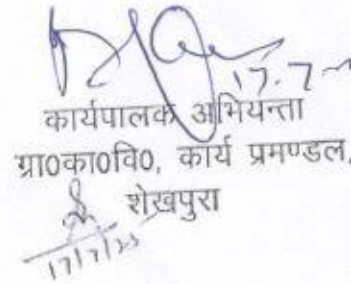 17.7
कार्यपालक अभियन्ता
ग्रा0का0वि0, कार्य प्रमण्डल,
शेखपुरा
17/7/23